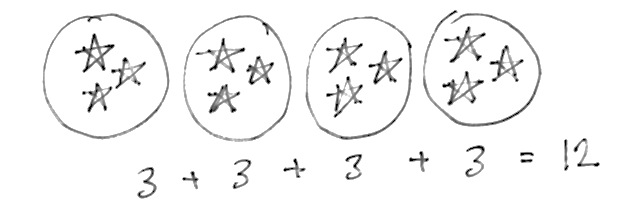 3 + 3 + 3 + 3 = 12